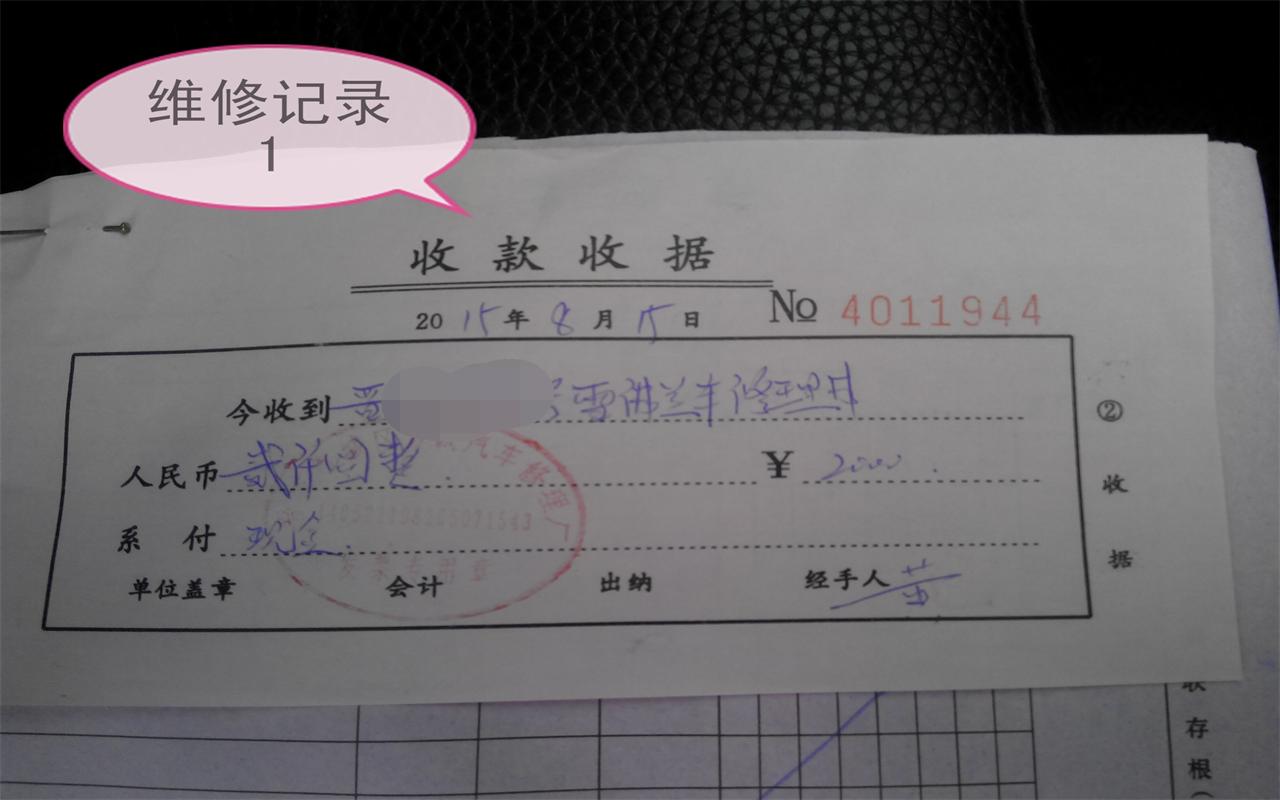 维修记录
1
收款收据
2015年8月15日 No 4011944
今收到晋 雪佛兰车修理费
人民币贰仟圆整. ¥2000.
系付现金.
单位盖章 会计 出纳 经手人
②收据
汽车修理厂
发票专用章
存根